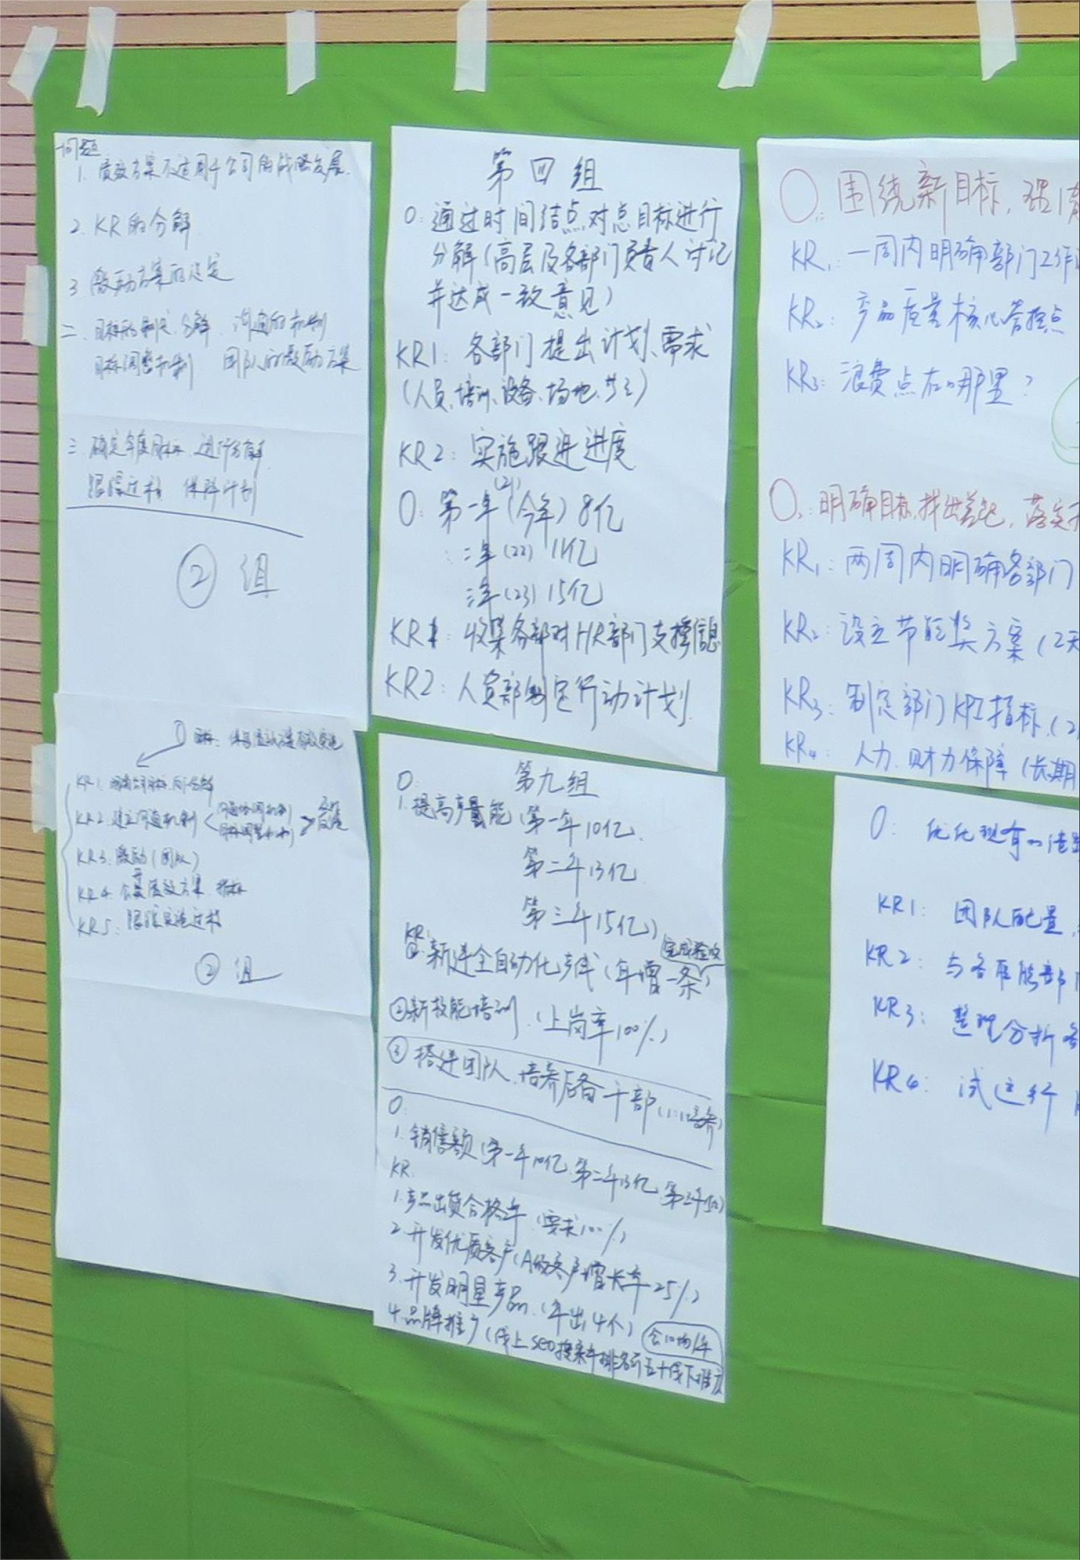 问题
1. 绩效方案不适用于公司的战略发展.
2. KR的分解
3 激励方案的设定
二 目标的制定、分解、沟通的机制
目标调整机制 团队的激励方案
三 确定年度目标 进行分解
跟踪过程 保障计划
② 组
O 目标:
KR1.
KR2. 建立沟通机制
KR3. 激励(团队)
KR4. 绩效方案 指标
KR5: 跟踪实施过程
② 组
第四组
O: 通过时间结点,对总目标进行
分解(高层及各部门负责人讨论
并达成一致意见)
KR1: 各部门提出计划、需求
(人员、培训、设备、场地、
KR2: 实施跟进进度
O: 第一年(今年)(21) 8亿
二年(22) 11亿
三年(23) 15亿
KR1: 收集各部对HR部门支撑信息
KR2: 人资部制定行动计划
第九组
O:
1.提高产能(第一年10亿.
第二年13亿
第三年15亿)
KR:
①新建全自动化产线(年增一条) 完成验收
②新技能培训.(上岗率100%)
③搭建团队、培养后备干部(1:1培养)
O:
1.销售额(第一年10亿、第二年13亿、第三年15亿)
KR.
1.产品出货合格率(要求100%)
2.开发优质客户(A级客户增长率25%)
3.开发明星产品.(年出4个)
4.品牌推广(线上seo搜索排名前五+线下推广
O: 围绕新目标,
KR1: 一周内明确部门工作
KR2: 产品质量核心管控点
KR3: 浪费点在哪里?
O: 明确目标,找出差距,落实
KR1: 两周内明确各部门
KR2: 设立节能奖方案(2天
KR3: 制定部门KPI指标.(2
KR4: 人力、财力保障(长期
O: 优化现有的
KR1: 团队配置,
KR2: 与各职能部
KR3: 整理分析各
KR4: 试运行